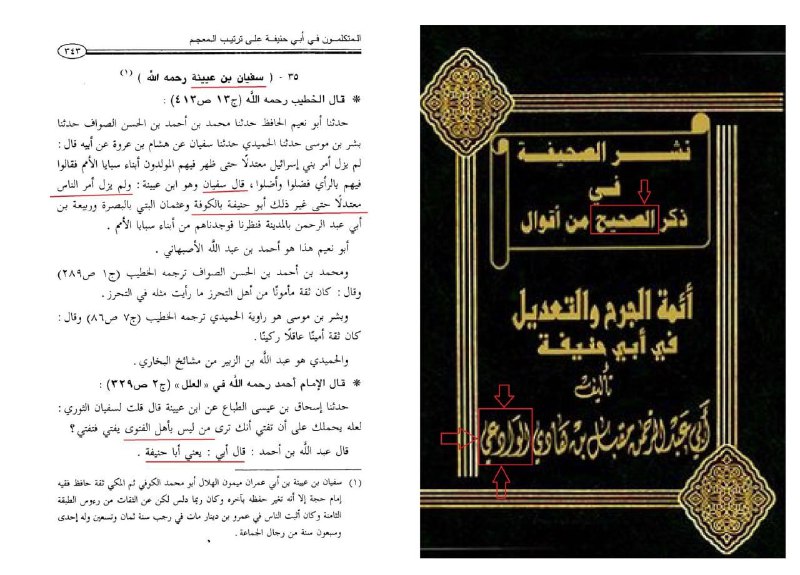 المتكلمون في أبي حنيفة على ترتيب المعجم
٣٤٣
٣٥ - ( سفيان بن عيينة رحمه الله ) (١)
* قال الخطيب رحمه الله (ج١٣ ص٤١٣) :
حدثنا أبو نعيم الحافظ حدثنا محمد بن أحمد بن الحسن الصواف حدثنا
بشر بن موسى حدثنا الحميدي حدثنا سفيان عن هشام بن عروة عن أبيه قال :
لم يزل أمر بني إسرائيل معتدلًا حتى ظهر فيهم المولدون أبناء سبايا الأمم فقالوا
فيهم بالرأي فضلوا وأضلوا، قال سفيان وهو ابن عيينة : ولم يزل أمر الناس
معتدلًا حتى غير ذلك أبو حنيفة بالكوفة وعثمان البتي بالبصرة وربيعة بن
أبي عبد الرحمن بالمدينة فنظرنا فوجدناهم من أبناء سبايا الأمم .
أبو نعيم هذا هو أحمد بن عبد الله الأصبهاني .
ومحمد بن أحمد بن الحسن الصواف ترجمه الخطيب (ج١ ص٢٨٩)
وقال : كان ثقة مأمونًا من أهل التحرز ما رأيت مثله في التحرز .
وبشر بن موسى هو راوية الحميدي ترجمه الخطيب (ج٧ ص٨٦) وقال :
كان ثقة أمينًا عاقلًا ركينًا .
والحميدي هو عبد الله بن الزبير من مشائخ البخاري .
* قال الإمام أحمد رحمه الله في «العلل» (ج٢ ص٣٢٩) :
حدثنا إسحاق بن عيسى الطباع عن ابن عيينة قال قلت لسفيان الثوري :
لعله يحملك على أن تفتي أنك ترى من ليس بأهل الفتوى يفتي فتفتي ؟
قال عبد الله بن أحمد : قال أبي : يعني أبا حنيفة .
(١) سفيان بن عيينة بن أبي عمران ميمون الهلال أبو محمد الكوفي ثم المكي ثقة حافظ فقيه
إمام حجة إلا أنه تغير حفظه بآخره وكان ربما دلس لكن عن الثقات من رءوس الطبقة
الثامنة وكان أثبت الناس في عمرو بن دينار مات في رجب سنة ثمان وتسعين وله إحدى
وسبعون سنة من رجال الجماعة .
نشر الصحيفة
في
ذكر الصحيح من أقوال
أئمة الجرح والتعديل
في أبي حنيفة
تأليف
أبي عبد الرحمن مقبل بن هادي الوادعي